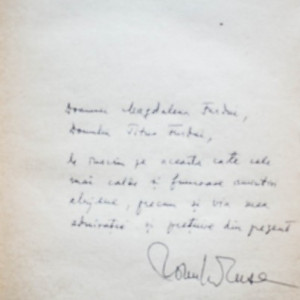 Doamnei Magdalena Furdui,
Domnului Titus Furdui,
le înscriu pe această carte cele
mai calde și frumoase amintiri
clujene, precum și via mea
admirație și prețuire din prezent